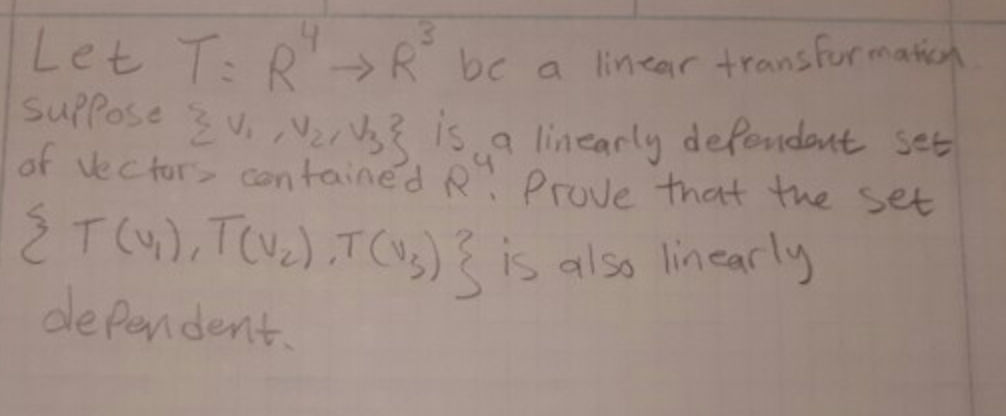 Let T: R⁴ → R³ be a linear transformation.
suppose { v₁, v₂, v₃ } is a linearly dependent set
of vectors contained R⁴. Prove that the set
{ T(v₁), T(v₂), T(v₃) } is also linearly
dependent.